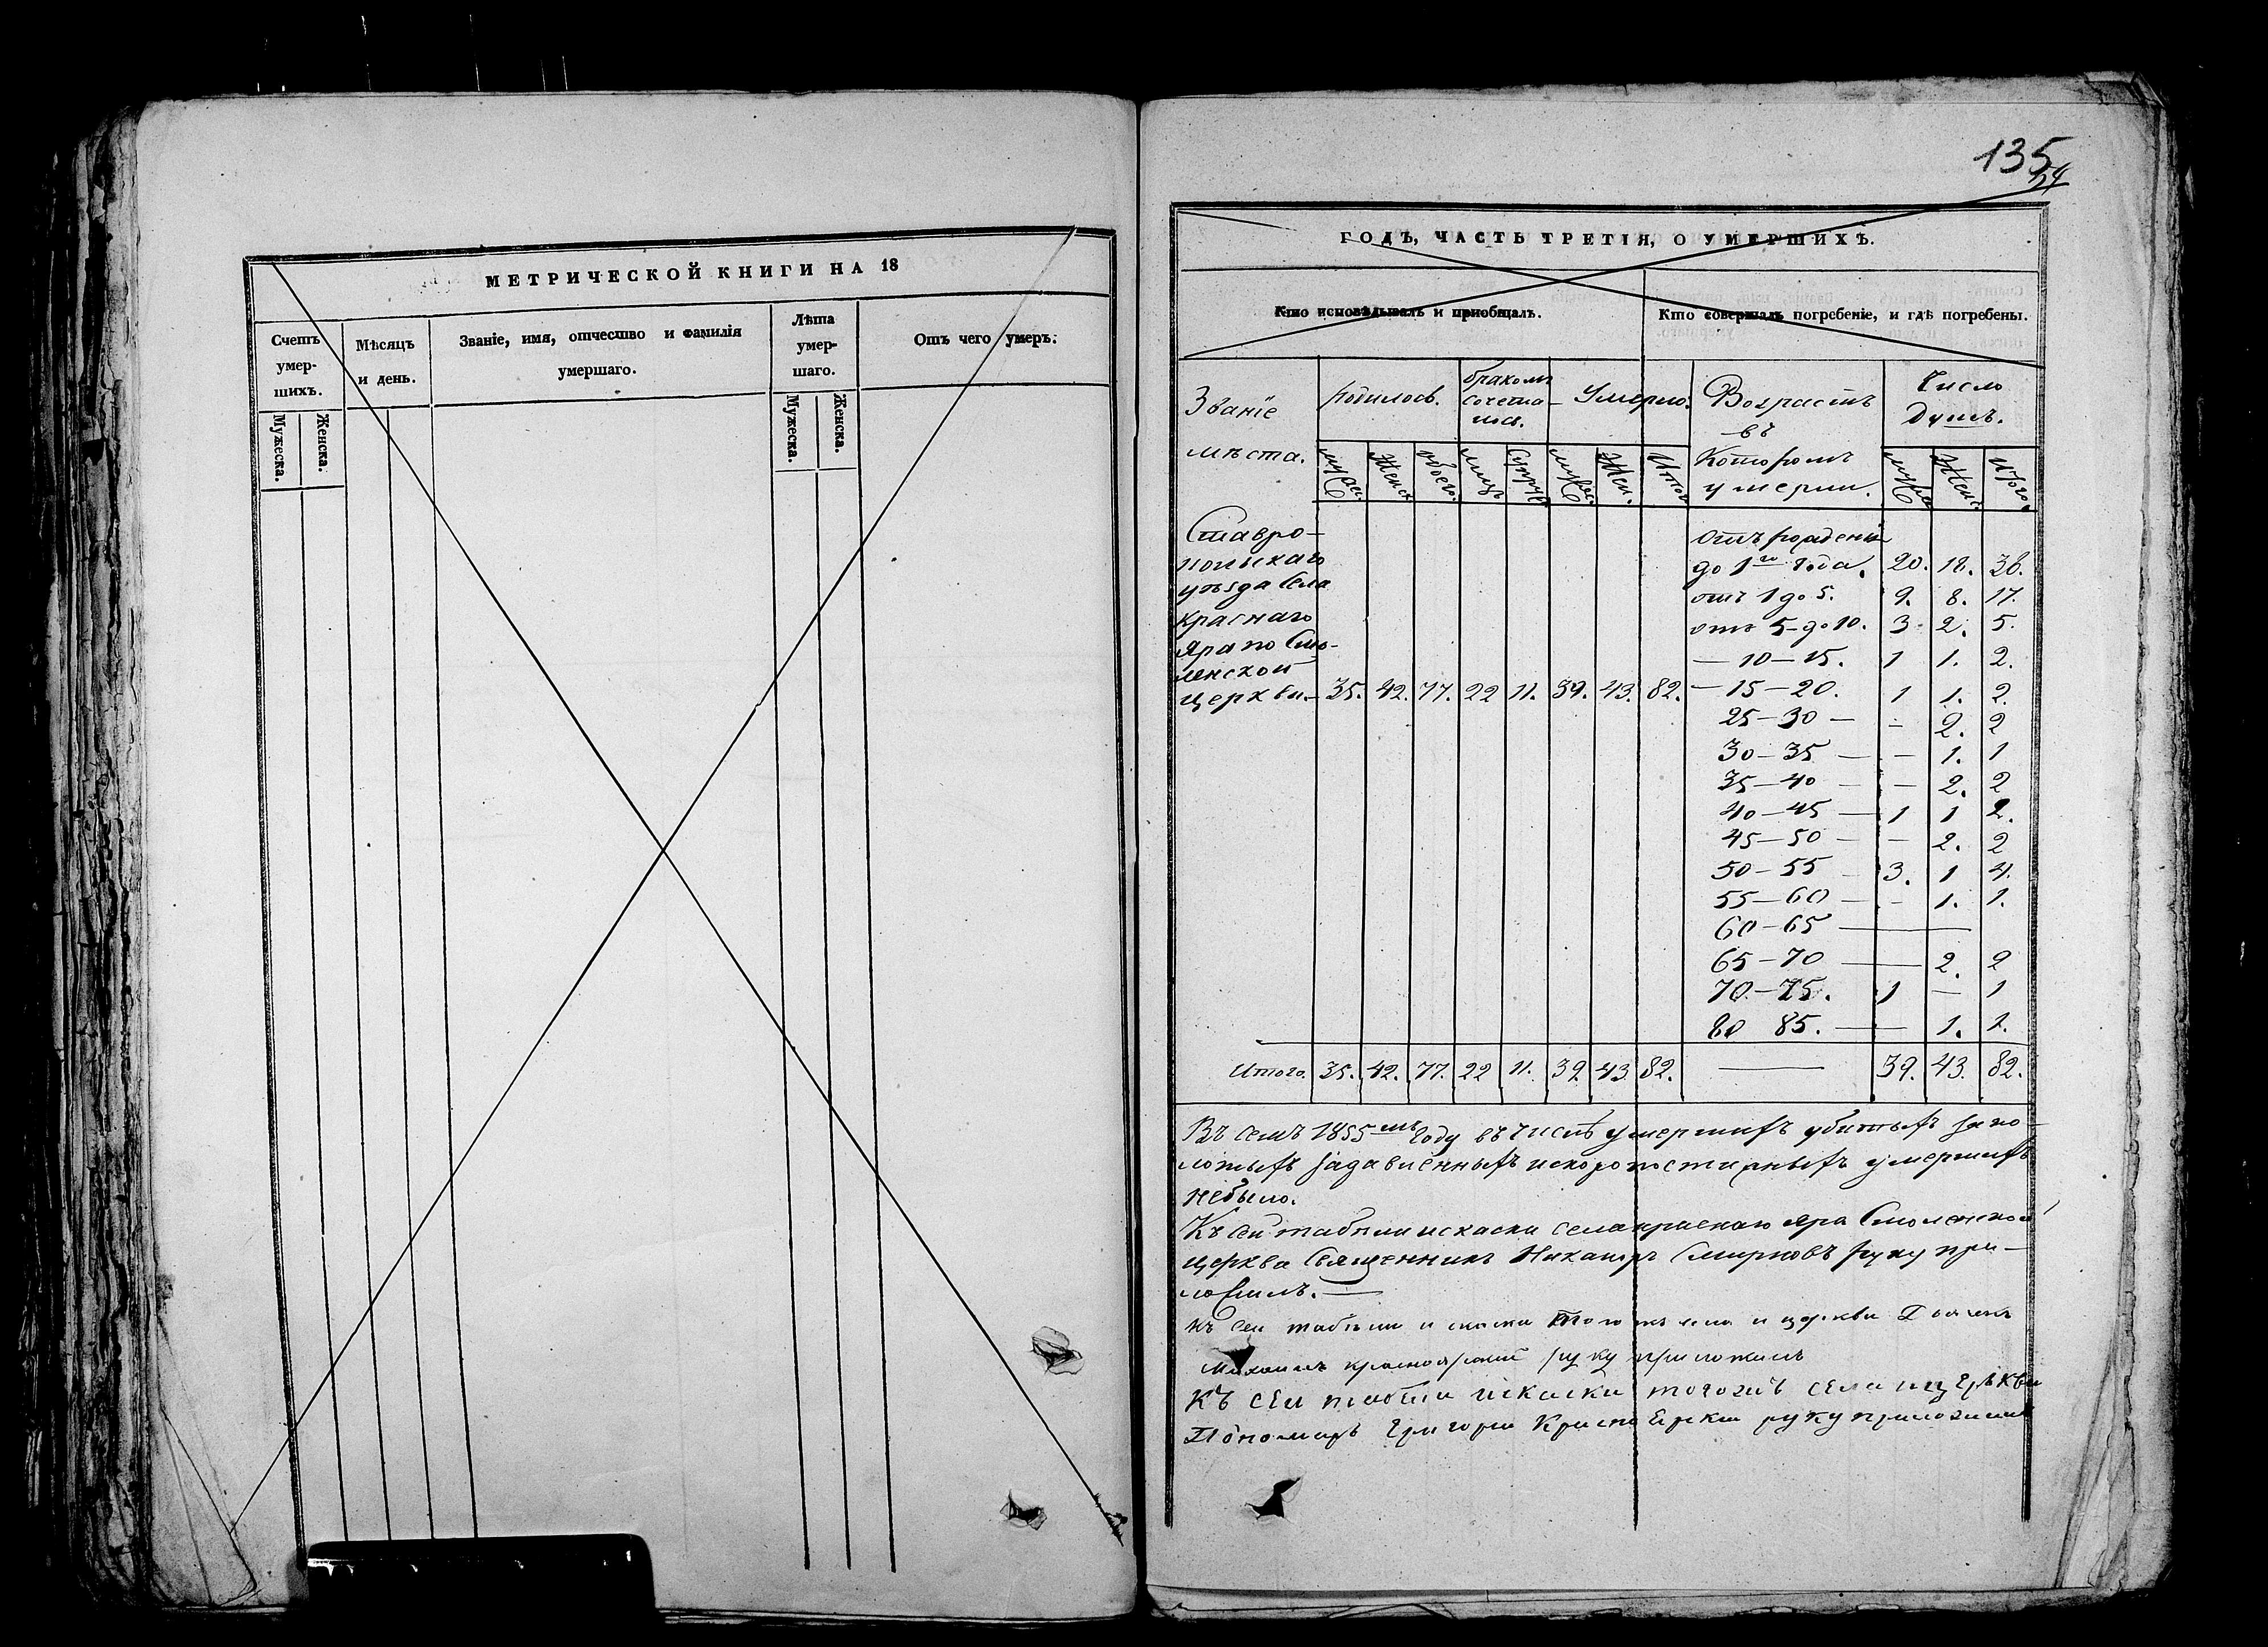 МЕТРИЧЕСКОЙ КНИГИ НА 18
Счетъ умер-шихъ.
Мужеска.
Женска.
Мѣсяцъ и день.
Званіе, имя, отчество и фамилія умершаго.
Лѣта умер-шаго.
Мужеска.
Женска.
Отъ чего умеръ.
135
ГОДЪ, ЧАСТЬ ТРЕТІЯ, О УМЕРШИХЪ.
Кто исповѣдывалъ и приобщалъ.
Кто совершалъ погребеніе, и гдѣ погребены.
Званіе мѣста.
Родилось.
бракомъ сочета-лись.
Умерло.
Возрастъ въ Которомъ умерли.
Число Душъ.
Муж. Женск. обоего. лицъ Супруж. Муж. Жен. Итого
Муж. Жен. Итого.
Ставро-
польскаго
уѣзда Села
Краснаго
Яра по Смо-
ленской
церкви. 35. 42. 77. 22 11. 39. 43. 82.
Отъ рожденія
до 1го года. 20. 18. 38.
отъ 1 до 5. 9. 8. 17.
отъ 5-до 10. 3 2. 5.
— 10 — 15. 1 1. 2.
— 15 — 20. 1 1. 2.
25 — 30 — — 2. 2
30 — 35 — — 1. 1
35 — 40 — — 2. 2
40 — 45 — 1 1 2.
45 — 50 — — 2. 2
50 — 55 3. 1 4.
55 — 60 — — 1. 1.
60 — 65 —
65 — 70 — 2. 2
70. — 75. 1 — 1
80 85. — 1. 1.
Итого 35. 42. 77. 22 11. 39. 43. 82. — 39. 43. 82.
Въ семъ 1855мъ году въ числѣ умершихъ убитыхъ зако-
лотыхъ задавленныхъ искоропостижныхъ умершихъ
небыло.
Къ сей табели искаски села краснаго яра Смоленской
церкви Священникъ Никаноръ Смирновъ руку при-
ложилъ. —
Къ сей табели и скаски того жъ села и церкви Дьячекъ
Михаилъ красноярский руку приложилъ
Къ сей табели искаски тогожъ села ицеркви
Пономарь Григори руку приложилъ